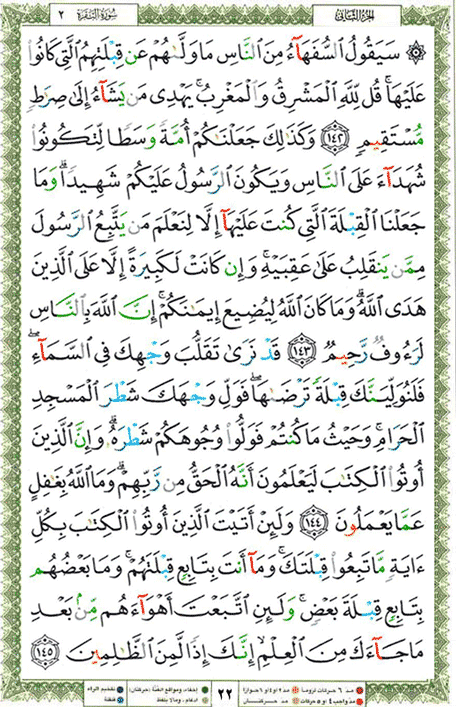 الجزء الثاني سورة البقرة ٢
۞ سَيَقُولُ السُّفَهَآءُ مِنَ النَّاسِ مَا وَلَّىٰهُمْ عَن قِبْلَتِهِمُ الَّتِى كَانُوا
عَلَيْهَا ۚ قُل لِّلَّهِ الْمَشْرِقُ وَالْمَغْرِبُ ۚ يَهْدِى مَن يَشَآءُ إِلَىٰ صِرَٰطٍ
مُّسْتَقِيمٍ ١٤٢ وَكَذَٰلِكَ جَعَلْنَٰكُمْ أُمَّةً وَسَطًا لِّتَكُونُوا
شُهَدَآءَ عَلَى النَّاسِ وَيَكُونَ الرَّسُولُ عَلَيْكُمْ شَهِيدًا ۗ وَمَا
جَعَلْنَا الْقِبْلَةَ الَّتِى كُنتَ عَلَيْهَآ إِلَّا لِنَعْلَمَ مَن يَتَّبِعُ الرَّسُولَ
مِمَّن يَنقَلِبُ عَلَىٰ عَقِبَيْهِ ۚ وَإِن كَانَتْ لَكَبِيرَةً إِلَّا عَلَى الَّذِينَ
هَدَى اللَّهُ ۗ وَمَا كَانَ اللَّهُ لِيُضِيعَ إِيمَٰنَكُمْ ۚ إِنَّ اللَّهَ بِالنَّاسِ
لَرَءُوفٌ رَّحِيمٌ ١٤٣ قَدْ نَرَىٰ تَقَلُّبَ وَجْهِكَ فِى السَّمَآءِ ۖ
فَلَنُوَلِّيَنَّكَ قِبْلَةً تَرْضَىٰهَا ۚ فَوَلِّ وَجْهَكَ شَطْرَ الْمَسْجِدِ
الْحَرَامِ ۚ وَحَيْثُ مَا كُنتُمْ فَوَلُّوا وُجُوهَكُمْ شَطْرَهُ ۗ وَإِنَّ الَّذِينَ
أُوتُوا الْكِتَٰبَ لَيَعْلَمُونَ أَنَّهُ الْحَقُّ مِن رَّبِّهِمْ ۗ وَمَا اللَّهُ بِغَٰفِلٍ
عَمَّا يَعْمَلُونَ ١٤٤ وَلَئِنْ أَتَيْتَ الَّذِينَ أُوتُوا الْكِتَٰبَ بِكُلِّ
ءَايَةٍ مَّا تَبِعُوا قِبْلَتَكَ ۚ وَمَآ أَنتَ بِتَابِعٍ قِبْلَتَهُمْ ۚ وَمَا بَعْضُهُم
بِتَابِعٍ قِبْلَةَ بَعْضٍ ۚ وَلَئِنِ اتَّبَعْتَ أَهْوَآءَهُم مِّنۢ بَعْدِ
مَا جَآءَكَ مِنَ الْعِلْمِ ۙ إِنَّكَ إِذًا لَّمِنَ الظَّٰلِمِينَ ١٤٥
٢٢